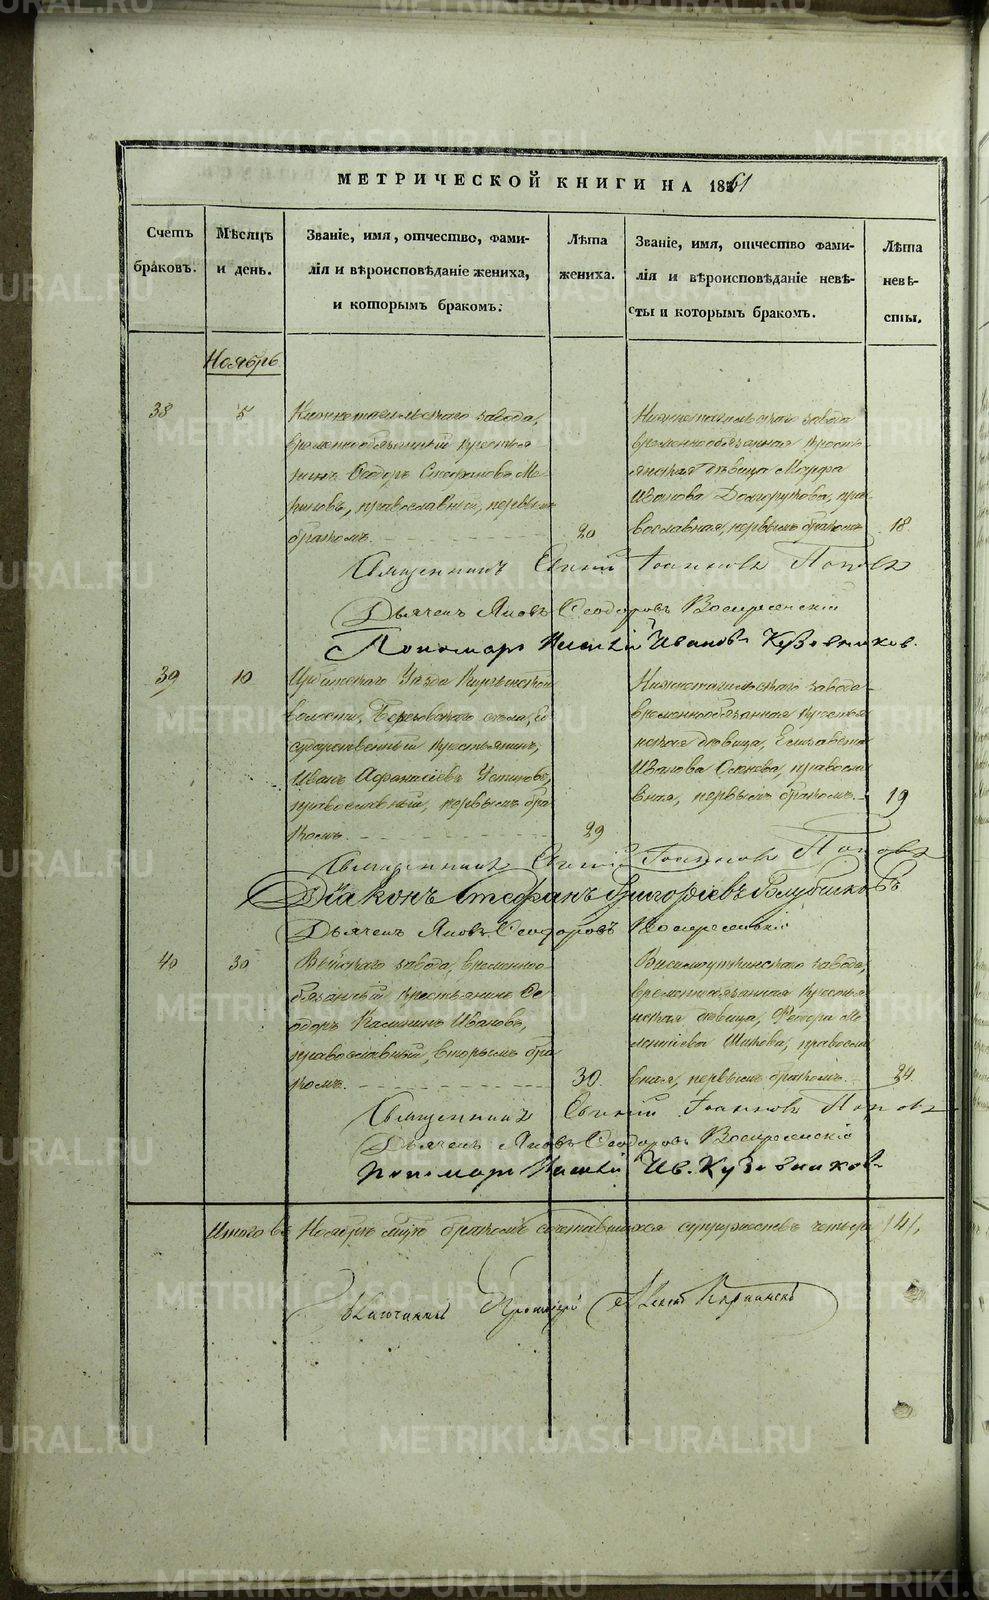 МЕТРИЧЕСКОЙ КНИГИ НА 1861
Счетъ браковъ.
Мѣсяцъ и день.
Званіе, имя, отчество, фами-
лія и вѣроисповѣданіе жениха,
и которымъ бракомъ.
Лѣта жениха.
Званіе, имя, отчество фами-
лія и вѣроисповѣданіе невѣ-
сты и которымъ бракомъ.
Лѣта невѣ-
сты.
Ноябрь
38
5
Нижнетагильскаго завода,
временнообязанный крестья
нинъ Ѳеодоръ Стефановъ Ме
риновъ, православный, первымъ
бракомъ.
20
Нижнетагильскаго завода
временнообязанная кресть
янская дѣвица Марфа
Иванова Долгорукова, пра
вославная, первымъ бракомъ
18
Священникъ Евгений Іоанновъ Поповъ
Дьячекъ Яковъ Ѳеодоровъ Воскресенскій
Пономарь Ивановъ Кузовниковъ.
39
10
Ирбитскаго Уѣзда
волости, села, го
сударственный крестьянинъ,
Иванъ Афанасіевъ Устиновъ,
православный, первымъ бра
комъ.
29
Нижнетагильскаго завода
временнообязанная крестья
нская дѣвица, Елисавета
Иванова, правосла
вная, первымъ бракомъ.
19
Священникъ Евгений Іоанновъ Поповъ
Діаконъ Стефанъ Григоріевъ Голубчиковъ
Дьячекъ Яковъ Ѳеодоровъ Воскресенскій
40
30
Выйскаго завода, временно
обязанный крестьянинъ Ѳе
одоръ Калининъ Ивановъ,
православный, вторымъ бра
комъ.
30.
Висимоуткинскаго завода,
временнообязанная крестья
нская дѣвица, Ме
лентіева, правосла
вная, первымъ бракомъ.
24.
Священникъ Евгений Іоанновъ Поповъ
Дьячекъ Яковъ Ѳеодоровъ Воскресенскій
Пономарь Ив. Кузовниковъ
Итого въ Ноябрѣ мцѣ бракомъ сочетавшихся супружествъ четыре /4/.
METRIKI.GASO-URAL.RU